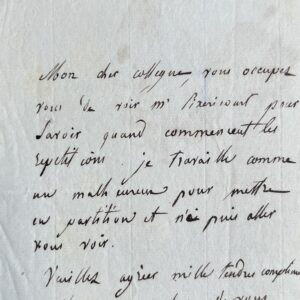 Mon cher collegue, vous occupez
vous de voir mr Pixericourt pour
Savoir quand commencent les
repetitions. je travaille comme
un malheureux pour mettre
en partition et n'ai puis aller
vous voir.
Veuillez agréer mille tendres complimens
de vous